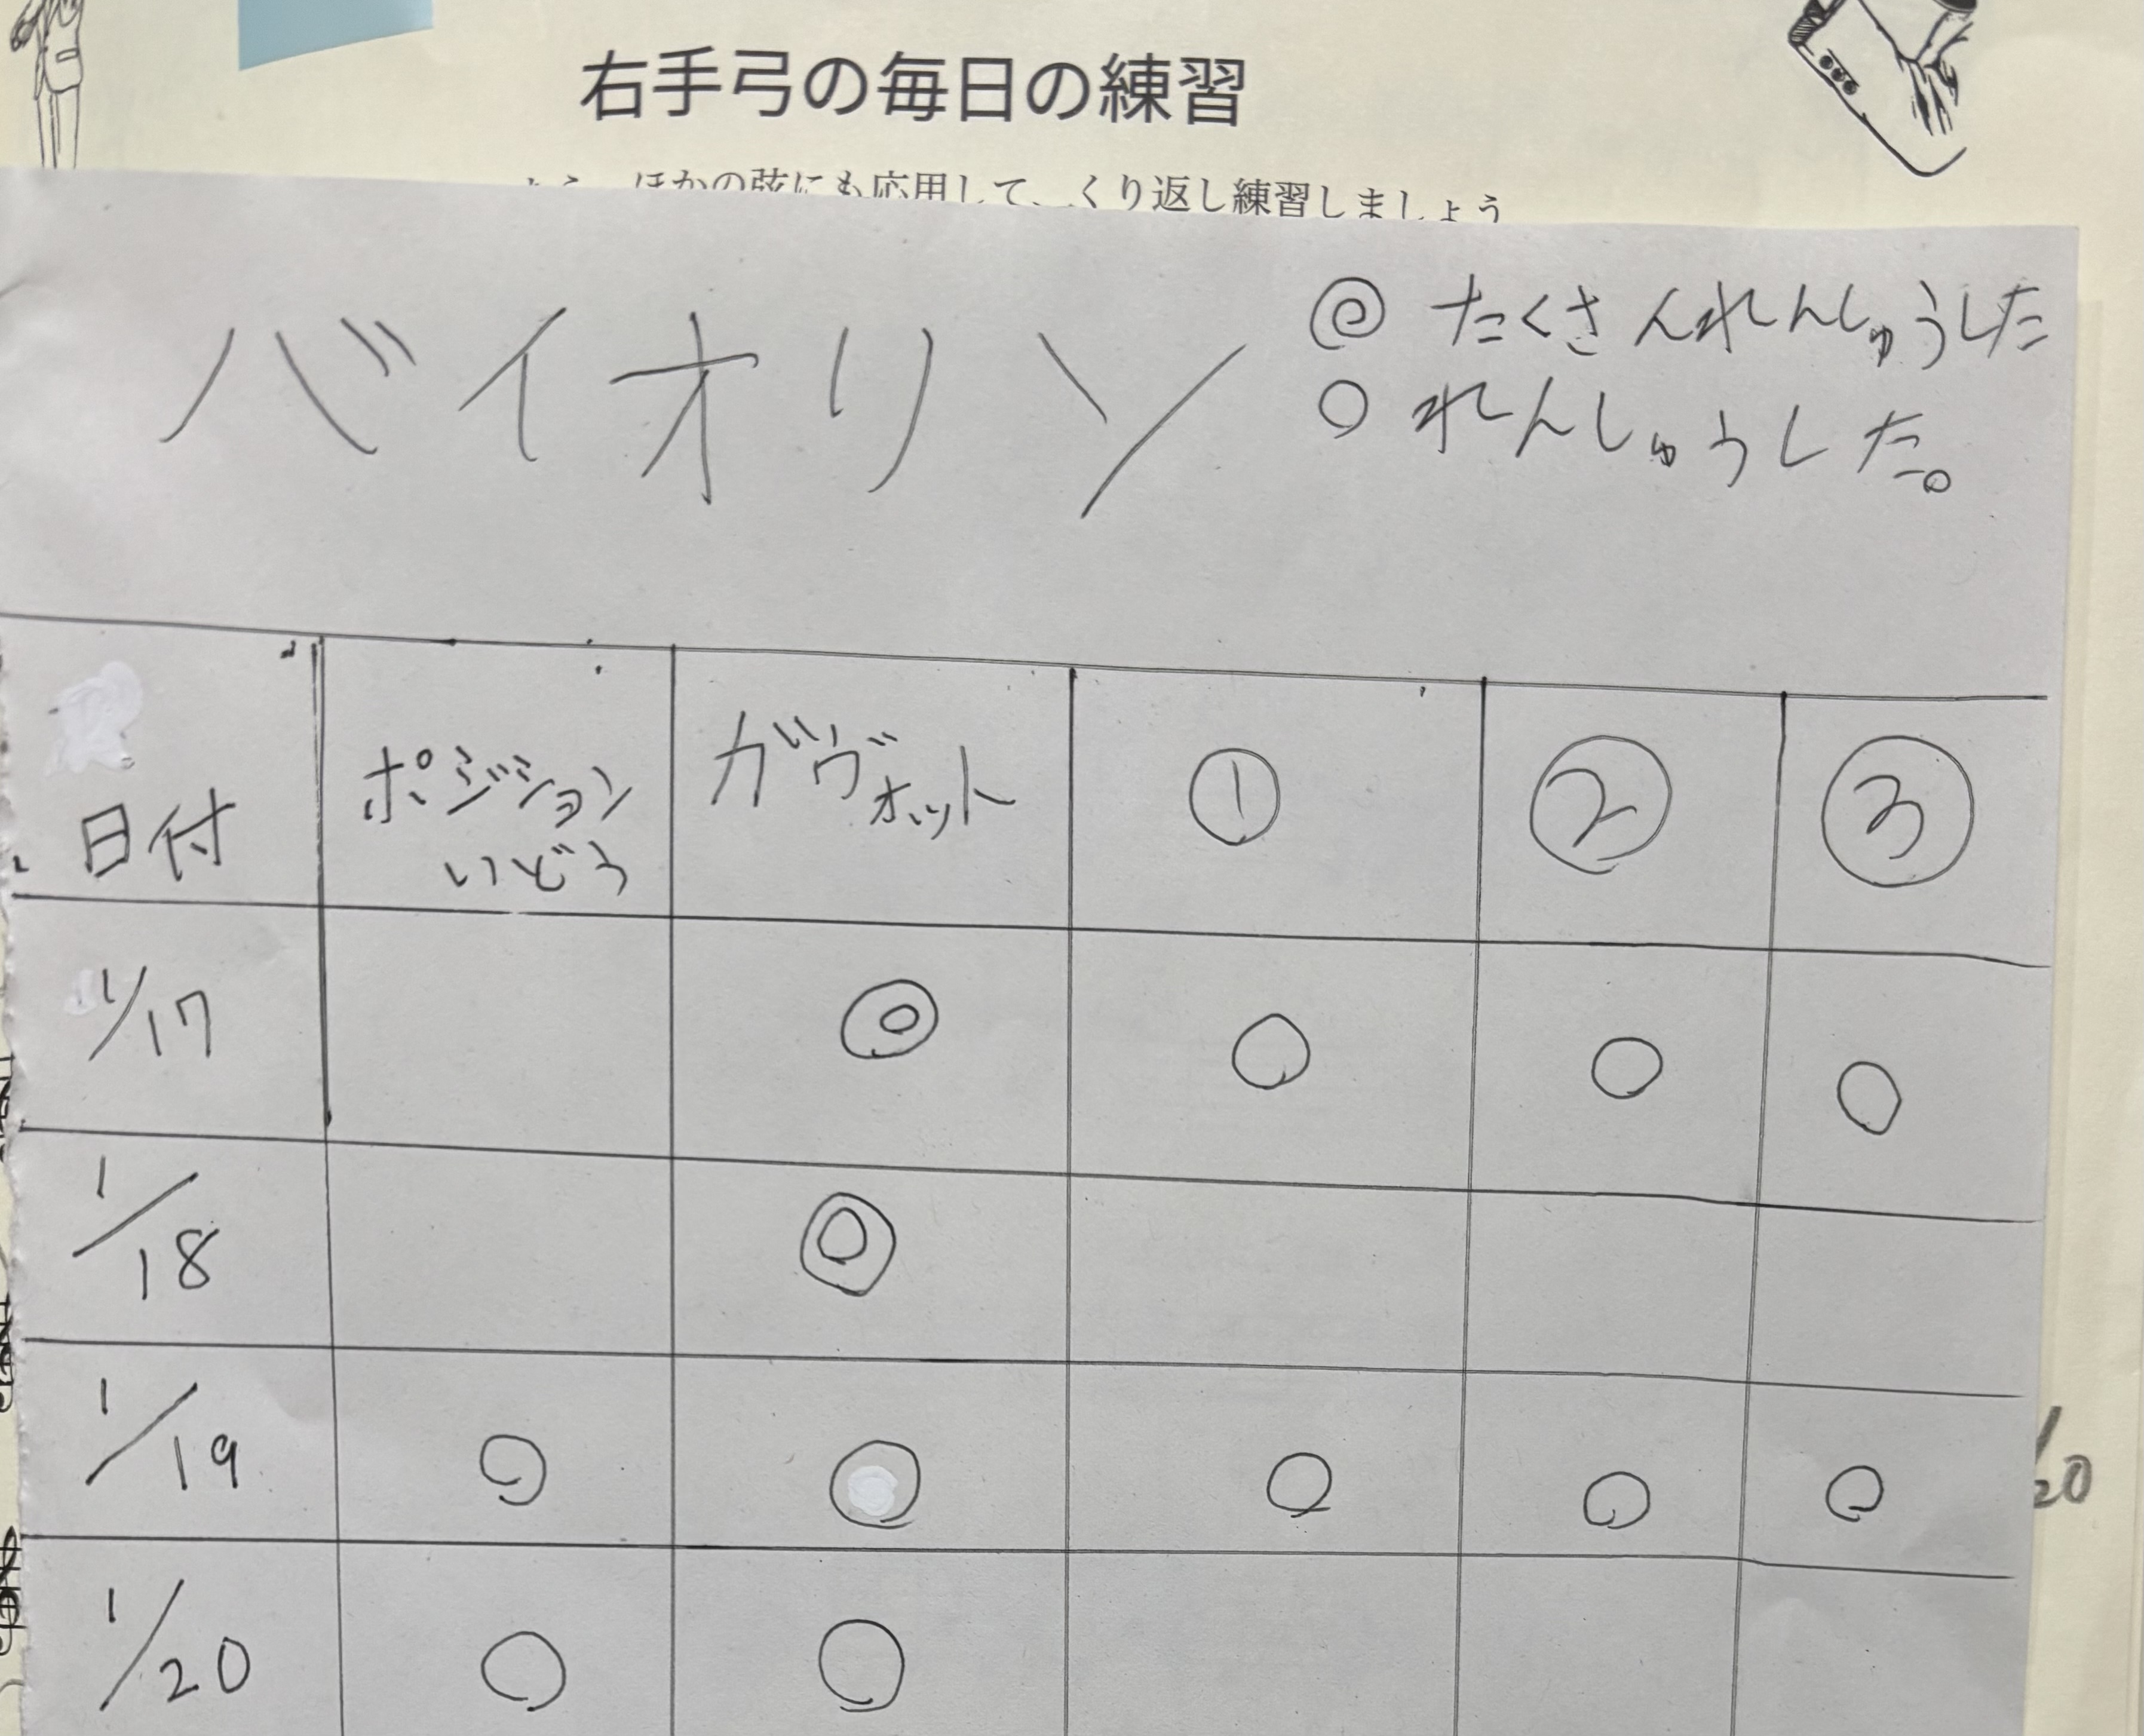 右手弓の毎日の練習
ほかの弦にも応用して、くり返し練習しましょう
バイオリン
◎ たくさんれんしゅうした
○ れんしゅうした。
日付 ポジションいどう ガヴォット ① ② ③
1/17 ◎ ○ ○ ○
1/18 ◎
1/19 ○ ○ ○ ○ ○
1/20 ○ ○